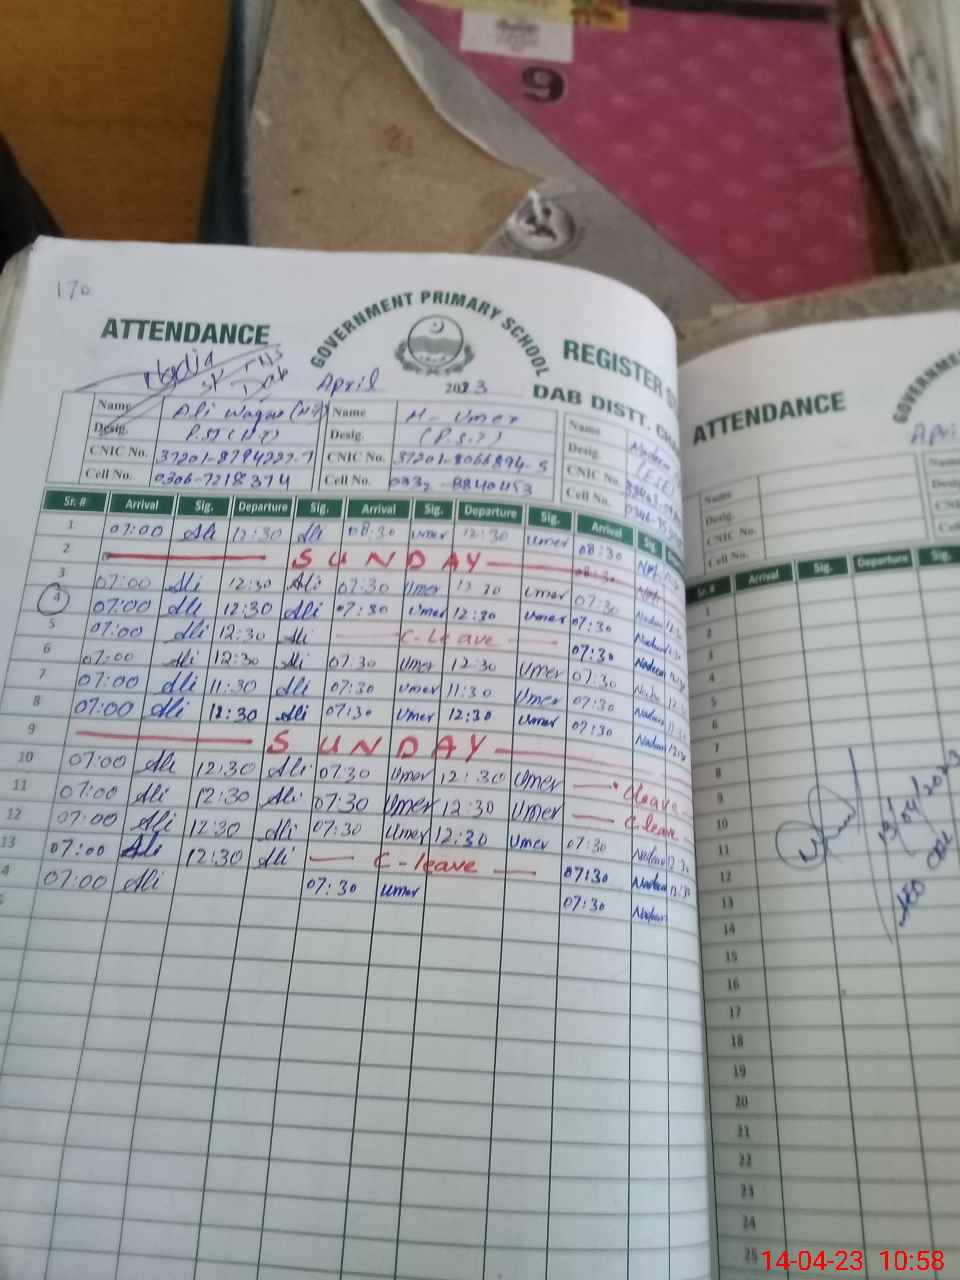 9
170
ATTENDANCE
GOVERNMENT PRIMARY SCHOOL
REGISTER
Nadia
Dab
April 2023
DAB DISTT.
Name Ali Waqas Name M. Umer Name
Desig. P.ST (H.T) Desig. (P.S.T) Desig.
CNIC No. CNIC No. CNIC No.
Cell No. 0306-7218374 Cell No. Cell No.
Sr. # Arrival Sig. Departure Sig. Arrival Sig. Departure Sig. Arrival Sig.
1 07:00 Ali 12:30 Ali 08:30 Umer 12:30 Umer 08:30
2 SUNDAY 08:30
3 07:00 Ali 12:30 Ali 07:30 Umer Umer 07:30
4 07:00 Ali 12:30 Ali 07:30 Umer 12:30 Umer 07:30 Nadeem
5 07:00 Ali 12:30 Ali C-Leave 07:30 Nadeem
6 07:00 Ali 12:30 Ali 07:30 Umer 12:30 Umer 07:30
7 07:00 Ali 11:30 Ali 07:30 Umer 11:30 Umer 07:30 Nadeem
8 07:00 Ali 12:30 Ali 07:30 Umer 12:30 Umer 07:30 Nadeem
9 SUNDAY
10 07:00 Ali 12:30 Ali 07:30 Umer 12:30 Umer C leave
11 07:00 Ali 12:30 Ali 07:30 Umer 12:30 Umer C leave
12 07:00 Ali 12:30 Ali 07:30 Umer 12:30 Umer 07:30 Nadeem 12:30
13 07:00 Ali 12:30 Ali C-leave 07:30 Nadeem 12:30
4 07:00 Ali 07:30 Umer 07:30 Nadeem
ATTENDANCE
GOVERNM
Apri
Name
Desig.
CNIC No.
Cell No.
Sr. # Arrival Sig. Departure Sig.
1
2
3
4
5
6
7
8
9
10
11
12
13
14
15
16
17
18
19
20
21
22
23
24
25
13/04/2023
AEO
14-04-23 10:58